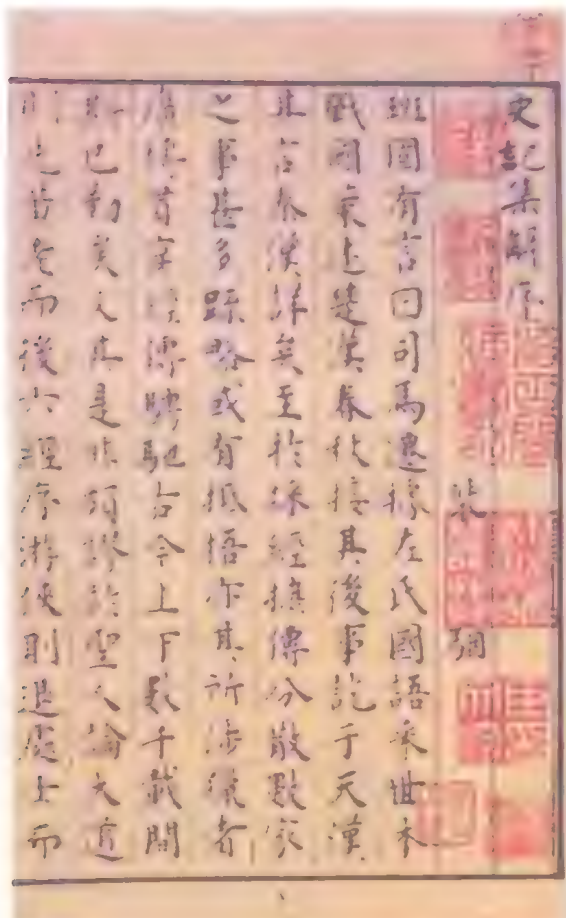 史記集解序
裴駰
班固有言曰司馬遷據左氏國語采世本
戰國策述楚漢春秋接其後事訖于天漢
其言秦漢詳矣至於採經摭傳分散數家
之事甚多踈略或有抵捂亦其所涉獵者
廣博貫穿經傳騁馳古今上下數千載間
斯已勤矣又其是非頗謬於聖人論大道
則先黃老而後六經序游俠則退處士而